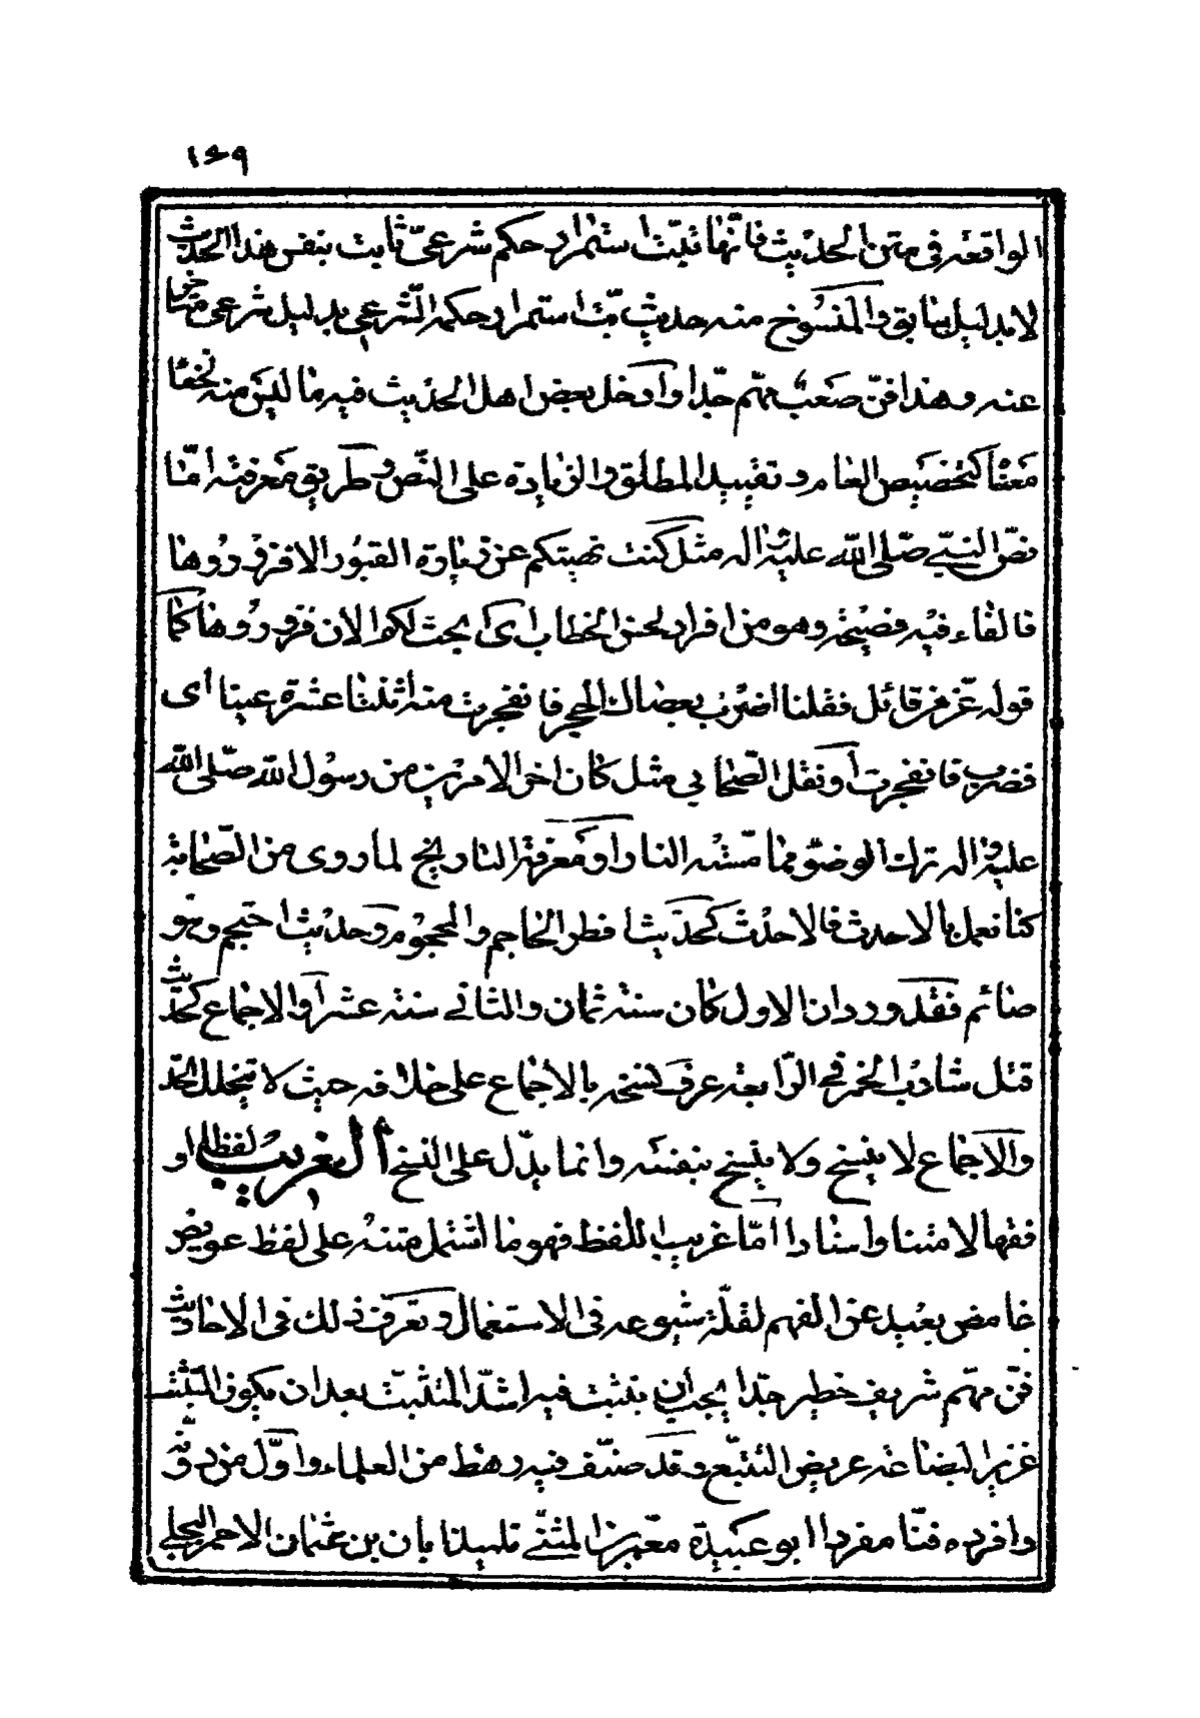 ١٦٩
الواقعة في متن الحديث فانّها تثبت استمرار حكم شرعيّ ثابت بنفس هذا الحديث
لا بدليل سابق والمنسوخ منه حديث بتّ استمرار حكمه الشّرعي بدليل شرعي متاخر
عنه وهذا فنّ صعب مهّم جّدا وادخل بعض اهل الحديث فيه ما ليس منه لخفاء
معناه كتخصيص العام وتقييد المطلق والزيادة على النّص وطريق معرفته امّا
نصّ النبيّ صلّى اللّه عليه واله مثل كنت نهيتكم عن زيارة القبور الا فزوروها
فالفاء فيه فصيحة وهو من افراد لحن الخطاب اى ابحت لكم الان فزوروها كما
قوله عّز من قائل فقلنا اضرب بعصاك الحجر فانفجرت منه اثنتا عشرة عينا اى
فضرب فانفجرت او نقل الصّحابي مثل كان اخر الامرين من رسول اللّه صلّى اللّه
عليه واله ترك الوضوّ مما مسّته النار او معرفة التاريخ لما روى من الصّحابة
كنا نعمل بالاحدث فالاحدث كحديث افطر الحاجم والمحجوم وحديث احتجم وهو
صائم فقد ورد ان الاول كان سنة ثمان والثاني سنة عشر او الاجماع كحديث
قتل شارب الخمر في الرّابعة عرف نسخه بالاجماع على خلافه حيث لا يتخلل الحدّ
والاجماع لا ينسخ ولا ينسخ بنفسه وانما يدّل على النسخ الغريب لفظا او
فقها لا متنا واسنادا امّا غريب اللفظ فهو ما اشتمل متنه على لفظ عويص
غامض بعيد عن الفهم لقلّة شيوعه في الاستعمال وتعرف ذلك في الاحاديث
فنّ مهّم شريف خطير جّدا يجب ان يتثبت فيه اشدّ التثبّت بعد ان يكون المتثبّت
غزير البضاعة عريض التتبّع وقد صنّف فيه رهط من العلماء واوّل من دوّنه
وافرده فنّا مفردا ابو عبيدة معّمر بن المثنّى تلميذ ابان بن عثمان الاحمر البجلي